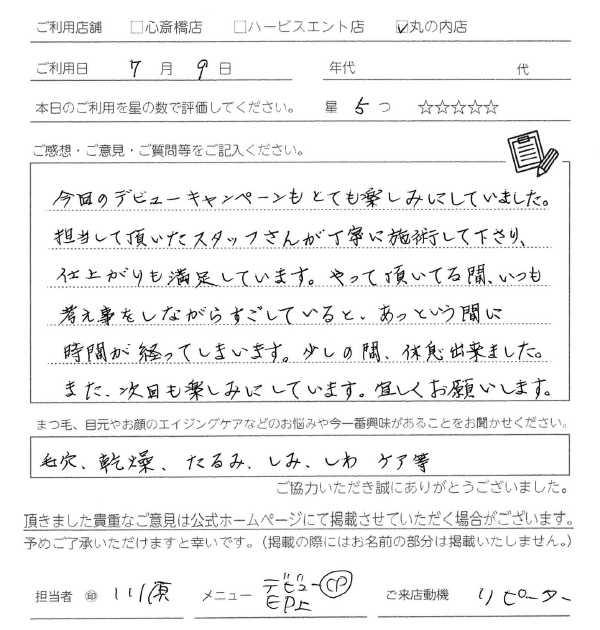 ご利用店舗 □心斎橋店 □ハービスエント店 ☑丸の内店
ご利用日 7月9日 年代 代
本日のご利用を星の数で評価してください。 星 5つ ☆☆☆☆☆
ご感想・ご意見・ご質問等をご記入ください。
今回のデビューキャンペーンもとても楽しみにしていました。
担当して頂いたスタッフさんが丁寧に施術して下さり、
仕上がりも満足しています。やって頂いてる間、いつも
考え事をしながらすごしていると、あっという間に
時間が経ってしまいます。少しの間、休息出来ました。
また、次回も楽しみにしています。宜しくお願いします。
まつ毛、目元やお顔のエイジングケアなどのお悩みや今一番興味があることをお聞かせください。
毛穴、乾燥、たるみ、しみ、しわ ケア等
ご協力いただき誠にありがとうございました。
頂きました貴重なご意見は公式ホームページにて掲載させていただく場合がございます。
予めご了承いただけますと幸いです。（掲載の際にはお名前の部分は掲載いたしません。）
担当者 ㊞ 川原 メニュー デビューCP
EP上 ご来店動機 リピーター